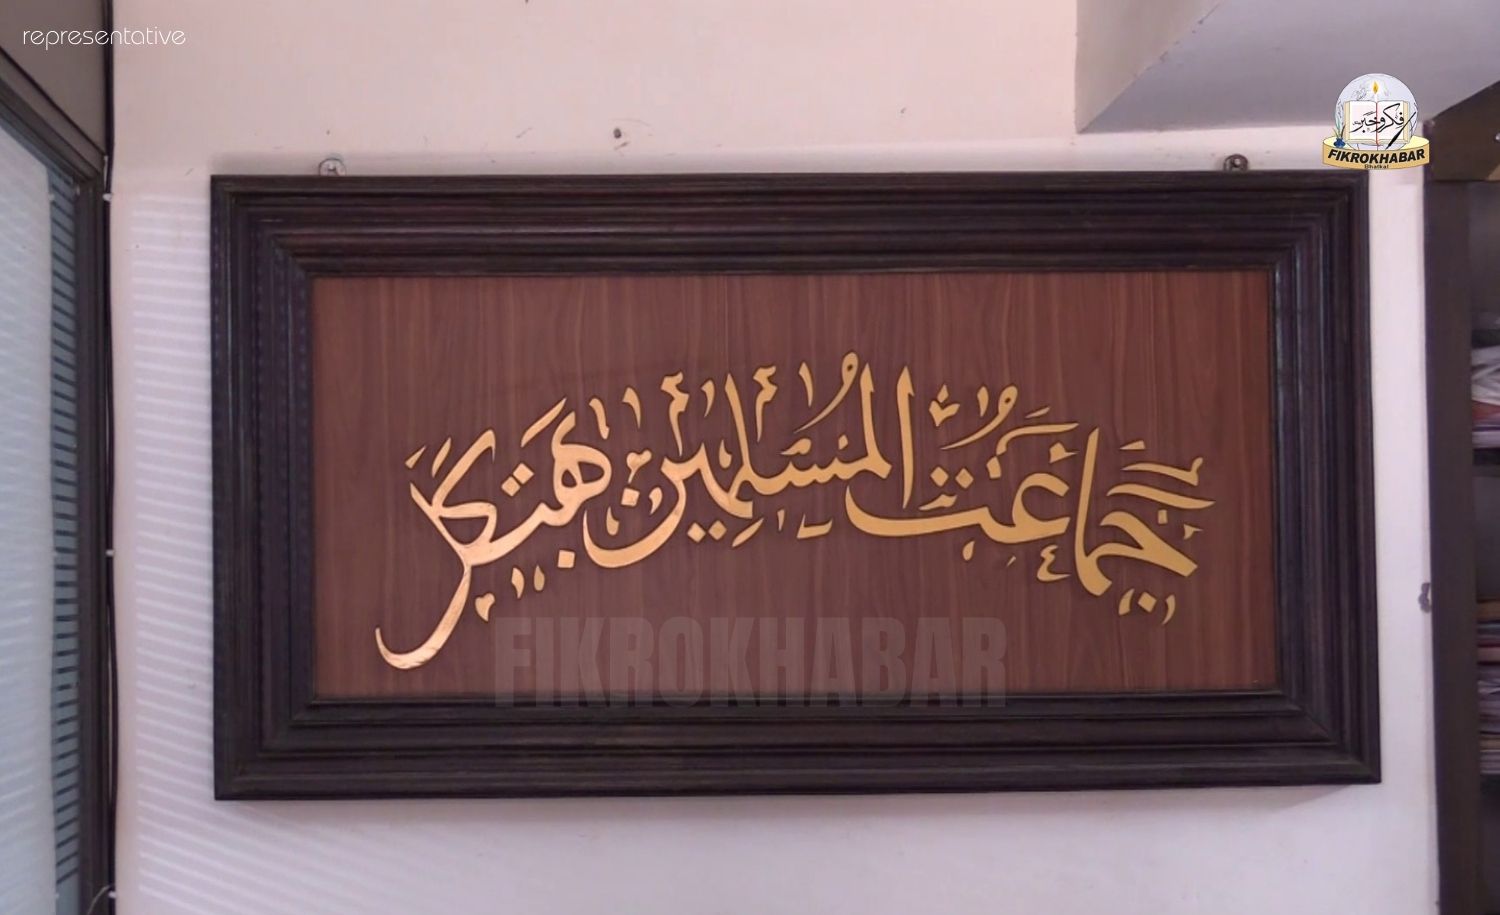 representative
فکروخبر
FIKROKHABAR
Bhatkal
جماعت المسلمین بھٹکل
FIKROKHABAR